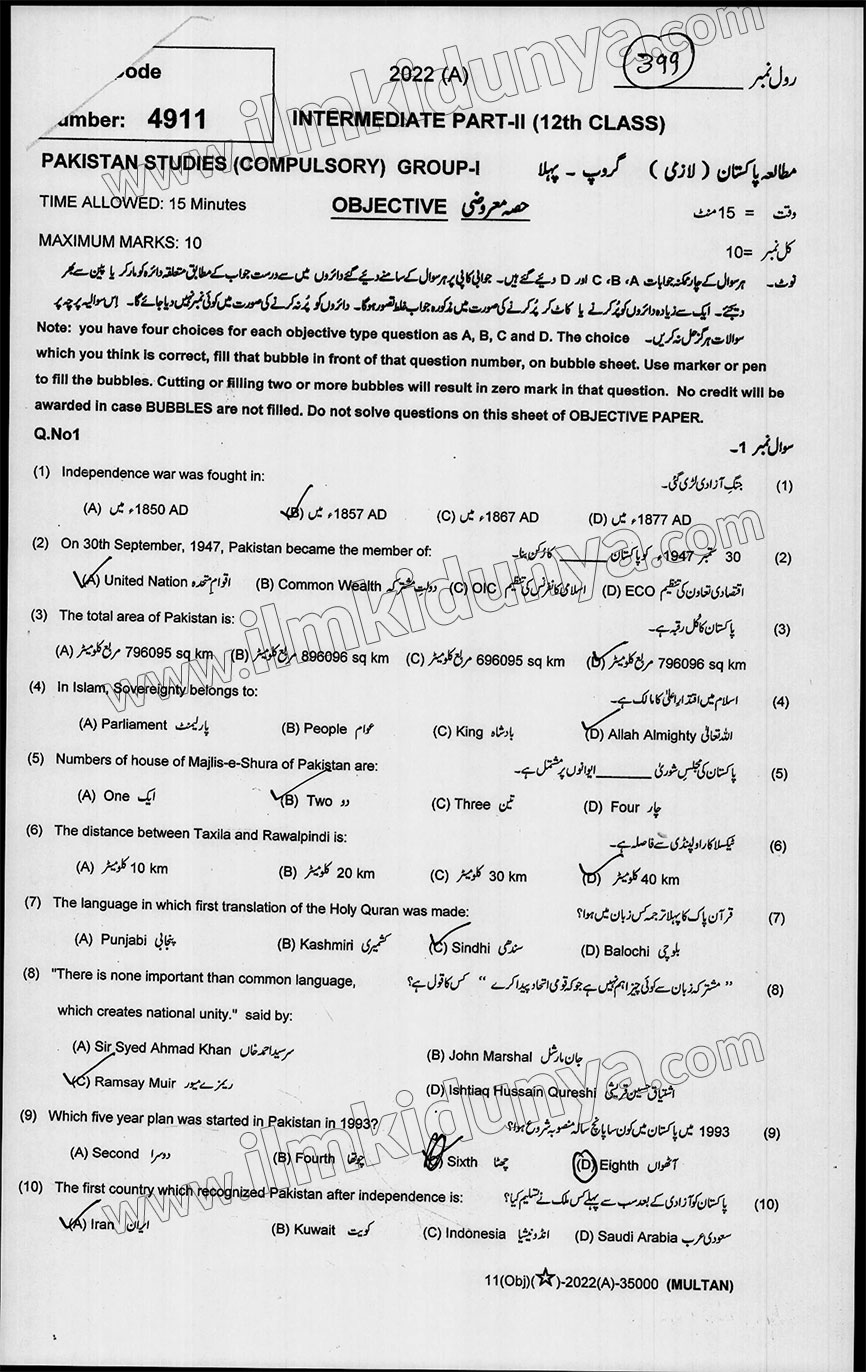 Code
2022 (A)
399
رول نمبر
Number: 4911
INTERMEDIATE PART-II (12th CLASS)
PAKISTAN STUDIES (COMPULSORY) GROUP-I
مطالعہ پاکستان ( لازمی ) گروپ - پہلا
TIME ALLOWED: 15 Minutes
OBJECTIVE حصہ معروضی
وقت = 15 منٹ
MAXIMUM MARKS: 10
کل نمبر =10
نوٹ - ہر سوال کے چار ممکنہ جوابات A، B، C اور D دیئے گئے ہیں۔ جوابی کاپی پر ہر سوال کے سامنے دیئے گئے دائروں میں سے درست جواب کے مطابق متعلقہ دائرہ کو مارکر یا پین سے بھر
دیجئے۔ ایک سے زیادہ دائروں کو پُر کرنے یا کاٹ کر پُر کرنے کی صورت میں مذکورہ جواب غلط تصور ہوگا۔ دائروں کو پُر نہ کرنے کی صورت میں کوئی نمبر نہیں دیا جائے گا۔ اس سوالیہ پرچہ پر
سوالات ہرگز حل نہ کریں۔
Note: you have four choices for each objective type question as A, B, C and D. The choice
which you think is correct, fill that bubble in front of that question number, on bubble sheet. Use marker or pen
to fill the bubbles. Cutting or filling two or more bubbles will result in zero mark in that question. No credit will be
awarded in case BUBBLES are not filled. Do not solve questions on this sheet of OBJECTIVE PAPER.
Q.No1
سوال نمبر 1۔
(1) Independence war was fought in:
جنگِ آزادی لڑی گئی۔ (1)
(A) 1850ء میں AD (B) 1857ء میں AD (C) 1867ء میں AD (D) 1877ء میں AD
(2) On 30th September, 1947, Pakistan became the member of:
30 ستمبر 1947ء کو پاکستان ______ کا رُکن بنا۔ (2)
(A) United Nation اقوامِ متحدہ (B) Common Wealth دولتِ مشترکہ (C) OIC اسلامی کانفرنس کی تنظیم (D) ECO اقتصادی تعاون کی تنظیم
(3) The total area of Pakistan is:
پاکستان کا کُل رقبہ ہے۔ (3)
(A) مربع کلومیٹر 796095 sq km (B) مربع کلومیٹر 896096 sq km (C) مربع کلومیٹر 696095 sq km (D) مربع کلومیٹر 796096 sq km
(4) In Islam, Sovereignty belongs to:
اسلام میں اقتدارِ اعلیٰ کا مالک ہے۔ (4)
(A) Parliament پارلیمنٹ (B) People عوام (C) King بادشاہ (D) Allah Almighty اللہ تعالیٰ
(5) Numbers of house of Majlis-e-Shura of Pakistan are:
پاکستان کی مجلسِ شوریٰ ______ ایوانوں پر مشتمل ہے۔ (5)
(A) One ایک (B) Two دو (C) Three تین (D) Four چار
(6) The distance between Taxila and Rawalpindi is:
ٹیکسلا کا راولپنڈی سے فاصلہ ہے۔ (6)
(A) کلومیٹر 10 km (B) کلومیٹر 20 km (C) کلومیٹر 30 km (D) کلومیٹر 40 km
(7) The language in which first translation of the Holy Quran was made:
قرآن پاک کا پہلا ترجمہ کس زبان میں ہوا؟ (7)
(A) Punjabi پنجابی (B) Kashmiri کشمیری (C) Sindhi سندھی (D) Balochi بلوچی
(8) "There is none important than common language,
"مشترکہ زبان سے کوئی چیز اہم نہیں ہے جو کہ قومی اتحاد پیدا کرے" کس کا قول ہے؟ (8)
which creates national unity." said by:
(A) Sir Syed Ahmad Khan سرسید احمد خاں (B) John Marshal جان مارشل
(C) Ramsay Muir ریمزے میور (D) Ishtiaq Hussain Qureshi اشتیاق حسین قریشی
(9) Which five year plan was started in Pakistan in 1993?
1993 میں پاکستان میں کون سا پانچ سالہ منصوبہ شروع ہوا؟ (9)
(A) Second دوسرا (B) Fourth چوتھا (C) Sixth چھٹا (D) Eighth آٹھواں
(10) The first country which recognized Pakistan after independence is:
پاکستان کو آزادی کے بعد سب سے پہلے کس ملک نے تسلیم کیا؟ (10)
(A) Iran ایران (B) Kuwait کویت (C) Indonesia انڈونیشیا (D) Saudi Arabia سعودی عرب
11(Obj)(☆)-2022(A)-35000 (MULTAN)
www.ilmkidunya.com
www.ilmkidunya.com
www.ilmkidunya.com